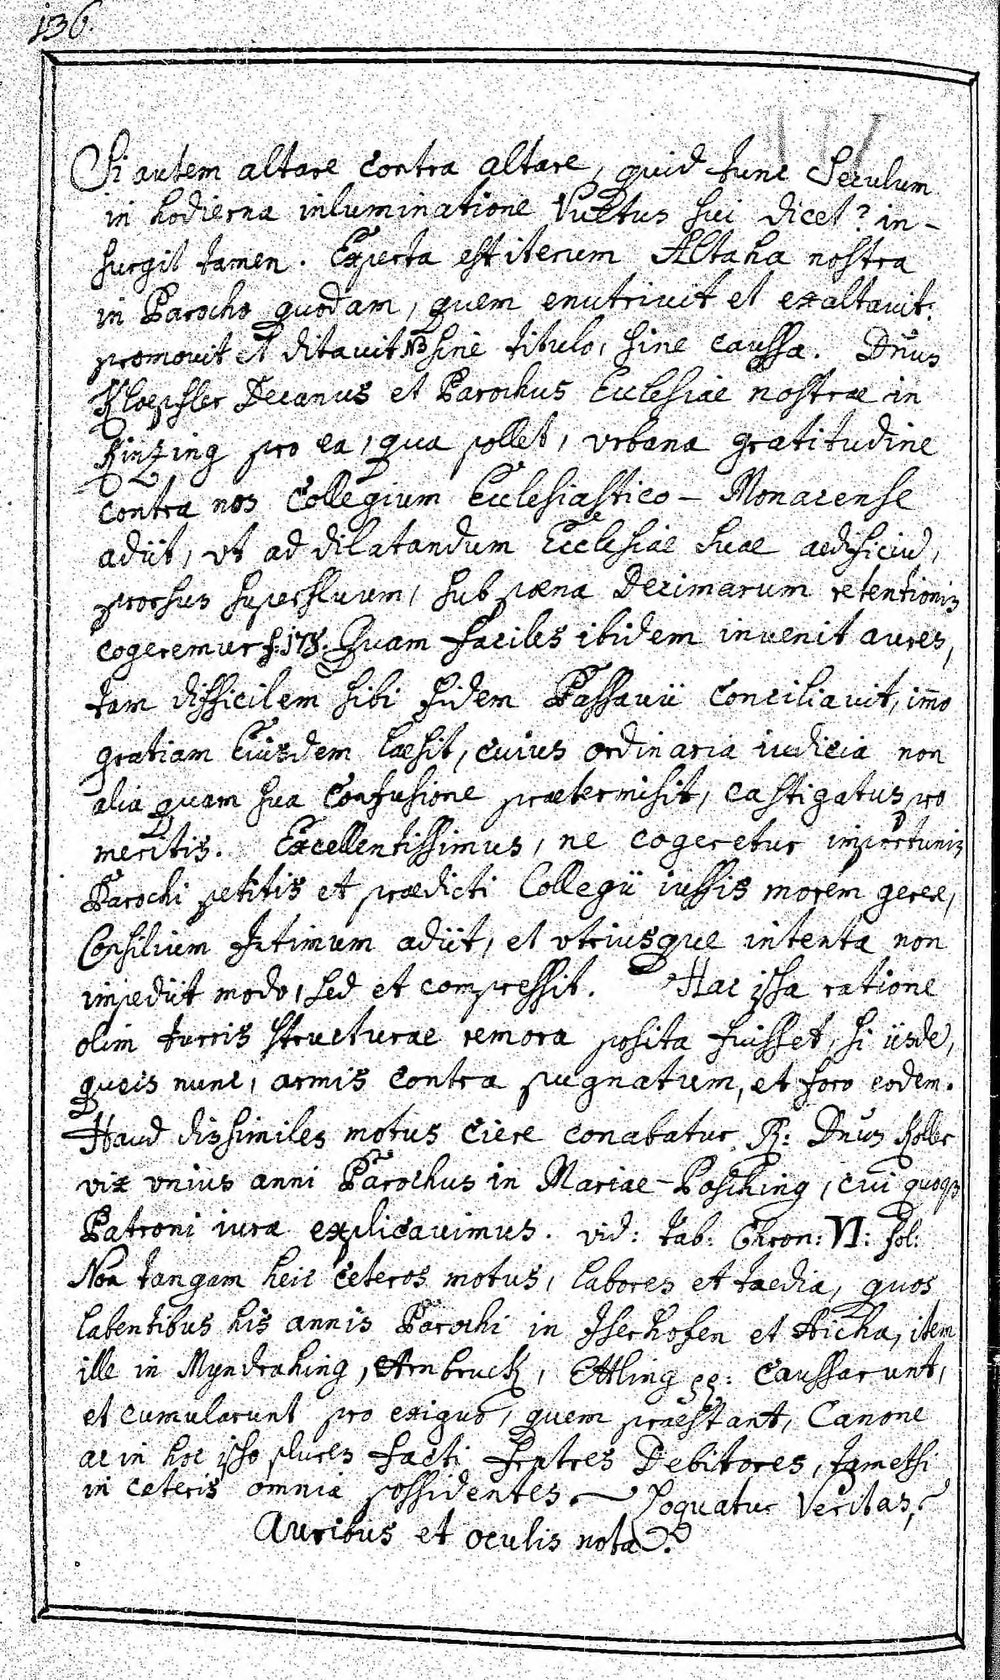 136.
Si autem altare contra altare, quid tunc Seculum
in hodierna inluminatione Vultus sui dicet? in-
surgit tamen. Experta est iterum Altaha nostra
in Parocho quodam, quem enutrivit et exaltavit:
promovit et ditavit NB sine titulo, sine caussa. Dn̄us
Kloepfler Decanus et Parochus Ecclesiae nostrae in
Kinzing pro ea, qua pollet, urbana gratitudine
contra nos Collegium Ecclesiastico - Monacense
adiit, vt ad dilatandum Ecclesiae suae aedificiū,
prorsus superfluum, sub poena Decimarum retentionis
cogeremur f. 178. Quam faciles ibidem invenit aures,
tam difficilem sibi fidem Passavii conciliavit, im̄o
gratiam Eiusdem laesit, cuius ordinaria iudicia non
alia quam sua Confusione praetermisit, castigatus pro
meritis. Excellentissimus, ne cogeretur importunis
Parochi petitis et praedicti Collegii iussis morem gerere,
Consilium Intimum adiit, et vtriusque intenta non
impediit modo, sed et compressit. Hac ipsa ratione
olim turris structurae remora posita fuisset, si iisdē,
queis nunc, armis contra pugnatum, et foro eodem.
Haud dissimiles motus ciere conabatur R: Dn̄us Koller
vix vnius anni Parochus in Mariae-Posching, cui quoqз
Patroni iura explicavimus. vid: tab: Chron: VI: fol:
Non tangam heic ceteros motus, labores et taedia, quos
labentibus his annis Parochi in Iserhofen et Aicha, item
ille in Myndraking, Arnbruck, Ettling pp: caussarunt,
et cumularunt pro exiguo, quem praestant, Canone
ac in hoc ipso plures facti fratres Debitores, tametsi
in ceteris omnia possidentes. Loquatur Veritas,
Auribus et oculis nota.